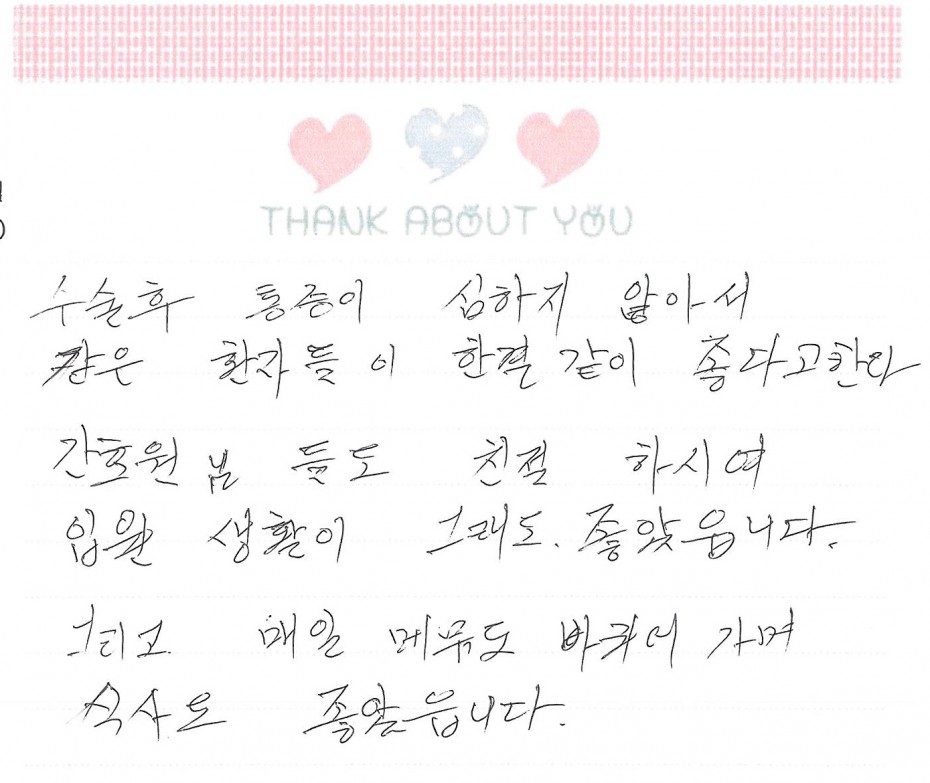 THANK ABOUT YOU
수술후 통증이 심하지 않아서
많은 환자들이 한결같이 좋다고한다
간호원님들도 친절 하시여
입원 생활이 그래도. 좋았읍니다.
그리고 매일 메뮤도 바뀌어 가며
식사도 좋았읍니다.